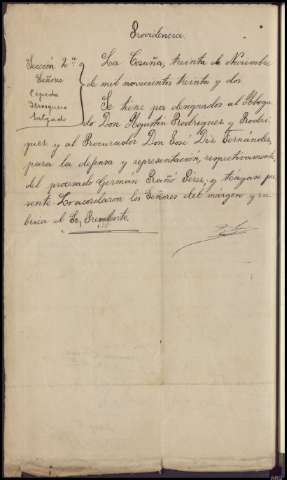 Providencia.
Sección 2ª
Señores
Cepeda
Salgado
La Coruña, treinta de Noviembre
de mil novecientos treinta y dos
Se tiene por designados al Aboga-
do Don Agustin Rodriguez y Rodri-
guez y al Procurador Don José Diz Fernández,
para la defensa y representación, respectivamente,
del procesado German Pérez, y hagase pre-
sente. Lo acordaron los Señores del márgen y ru-
brica el Sr. Presidente.